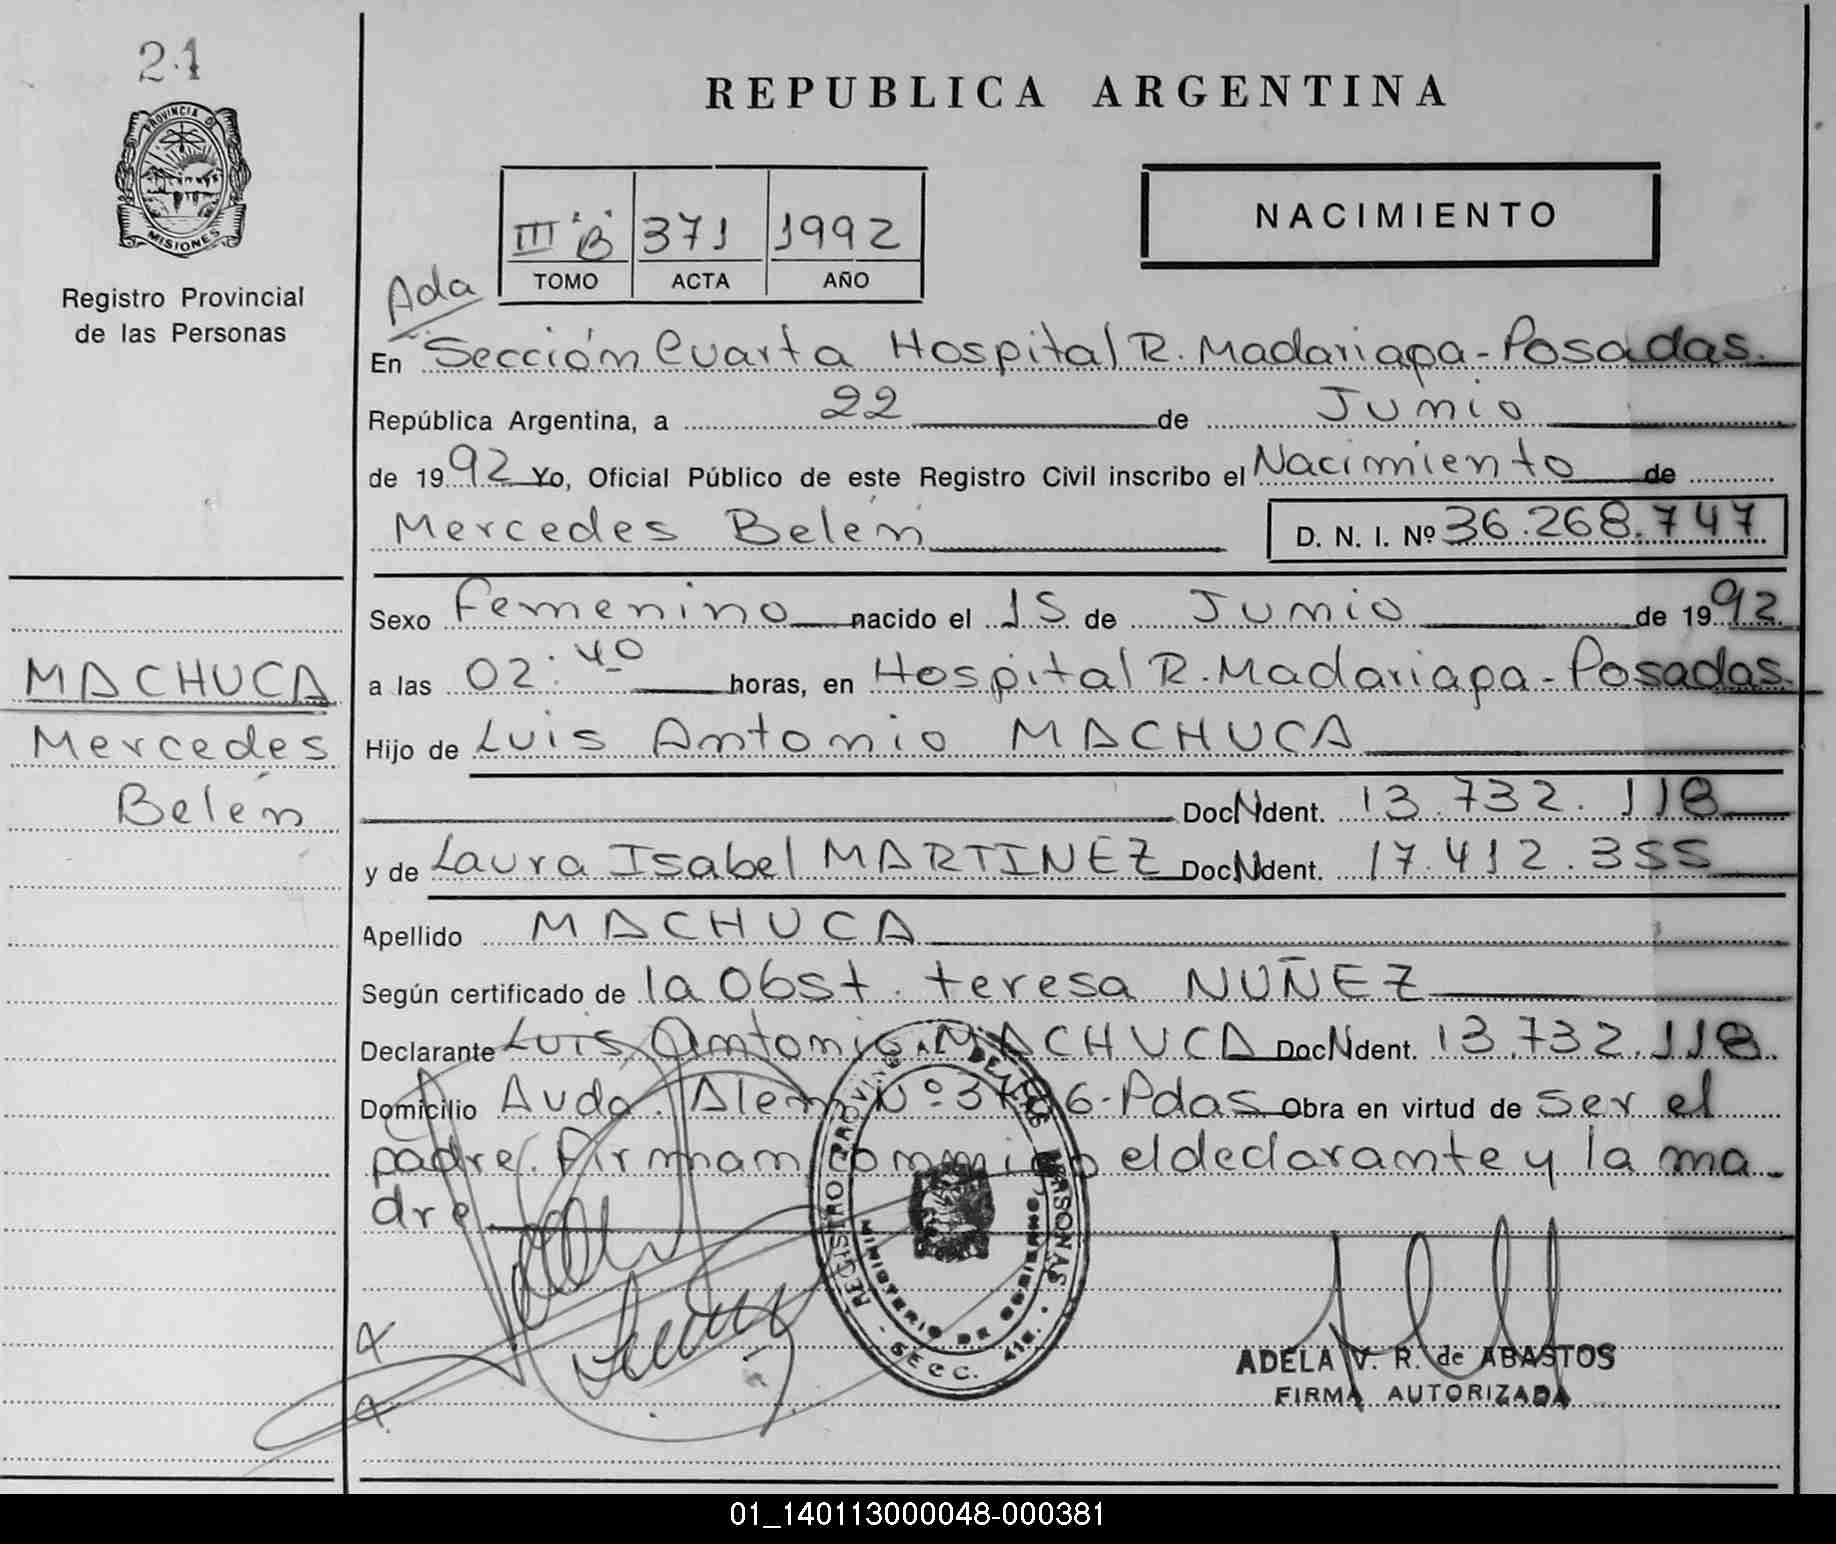 21
REPUBLICA ARGENTINA
PROVINCIA DE
MISIONES
Registro Provincial
de las Personas
III "B" 371 1992
TOMO ACTA AÑO
NACIMIENTO
Ada
En Sección Cuarta Hospital R. Madariaga - Posadas.
República Argentina, a 22 de Junio
de 1992 Yo, Oficial Público de este Registro Civil inscribo el Nacimiento de
Mercedes Belén D. N. I. Nº 36.268.747
Sexo Femenino nacido el 15 de Junio de 1992.
MACHUCA
Mercedes
Belén
a las 02:40 horas, en Hospital R. Madariaga - Posadas.
Hijo de Luis Antonio MACHUCA
DocNdent. 13.732.118
y de Laura Isabel MARTINEZ DocNdent. 17.412.355
Apellido MACHUCA
Según certificado de la Obst. teresa NUÑEZ
Declarante Luis Antonio MACHUCA DocNdent. 13.732.118.
Domicilio Avda. Alem Nº Pdas Obra en virtud de ser el
padre. Firman conmigo el declarante y la ma-
dre
REGISTRO PROVINCIAL DE LAS PERSONAS
MINISTERIO DE GOBIERNO
- SECC. 4ta. -
ADELA V. R. de ABASTOS
FIRMA AUTORIZADA
01_140113000048-000381